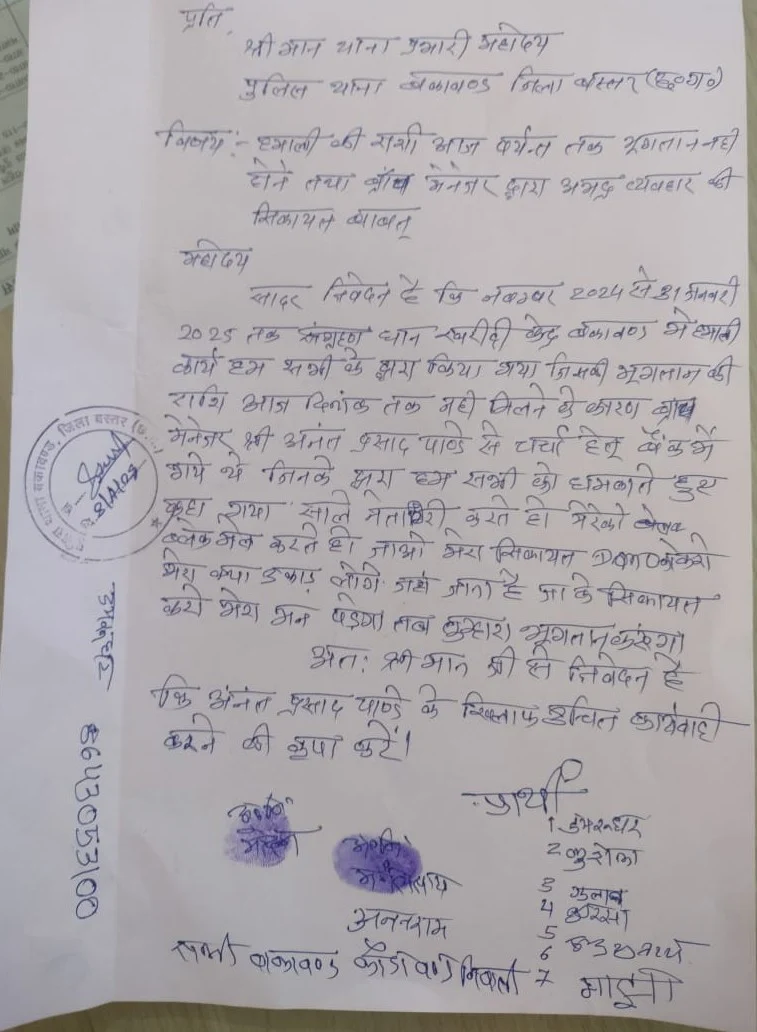 प्रति,
श्री मान थाना प्रभारी महोदय
पुलिस थाना बकावण्ड जिला बस्तर (छ०ग०)
विषय :- हमाली की राशी आज पर्यन्त तक भूगतान नही
होने तथा ब्रांच मेनेजर द्वारा अभद्र व्यवहार की
सिकायत बाबत्
महोदय
सादर निवेदन है कि नवम्बर 2024 से 31 जनवरी
2025 तक संग्रहण धान खरीदी केन्द्र बकावण्ड मे हमाली
कार्य हम सभी के द्वारा किया गया जिसकी भूगतान की
राशि आज दिनांक तक नही मिलने के कारण ब्रांच
मेनेजर श्री अनंत प्रसाद पाण्डे से चर्चा हेतू बैंक में
गये थे जिनके द्वारा हम सभी को धमकाते हुए
कहा गया साले नेतागिरी करते हो मेरेको
ब्लेकमेल करते हो जाओ मेरा सिकायत करो
मेरा क्या उखाड़ लोगे जहां जाना है जा के सिकायत
करो मेरा मन पड़ेगा तब तुम्हारा भूगतान करूंगा
अतः श्री मान जी से निवेदन है
कि अनंत प्रसाद पाण्डे के खिलाफ उचित कार्यवाही
करने की कृपा करें।
प्रार्थी
1 डमरूधर
2
3 गुलाब
4
5
6
7 माझी
अनतराम
सभी बकावण्ड निवासी
थाना बकावण्ड, जिला बस्तर
8643053100